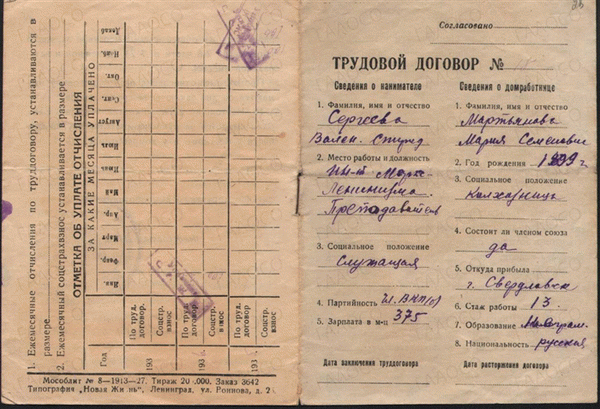 1. Ежемесячные отчисления по труддоговору, устанавливаются в
размере
2. Ежемесячный соцстрахвзнос устанавливается в размере
ОТМЕТКА ОБ УПЛАТЕ ОТЧИСЛЕНИЯ
ЗА КАКИЕ МЕСЯЦА УПЛАЧЕНО
Год
Янв.
Февр.
Март
Апр.
Май
Июнь
Июль
Август
Сент.
Окт.
Нояб.
Декаб
193
По труд. договор.
Соцстр. взнос
193
По труд. договор.
Соцстр. взнос
193
По труд. договор.
Соцстр. взнос
Мособлит № 8—1913—27. Тираж 20.000. Заказ 3642
Типография „Новая Жи нь", Ленинград, ул. Роннова, д. 2
Согласовано
ТРУДОВОЙ ДОГОВОР №
Сведения о нанимателе
1. Фамилия, имя и отчество
Сергеева
Вален.
2. Место работы и должность
Ин-т Маркс-
Ленинизма.
Преподаватель
3. Социальное положение
Служащая
4. Партийность чл. ВКП(б)
5. Зарплата в м-ц 375
Дата заключения труддоговора
Сведения о домработнице
1. Фамилия, имя и отчество
Мартьянова
Мария Семеновна
2. Год рождения 1899 г
3. Социальное положение
Колхозница
4. Состоит ли членом союза
да
5. Откуда прибыла
г. Свердловск
6. Стаж работы 13.
7. Образование Малограм.
8. Национальность русская
Дата расторжения договора